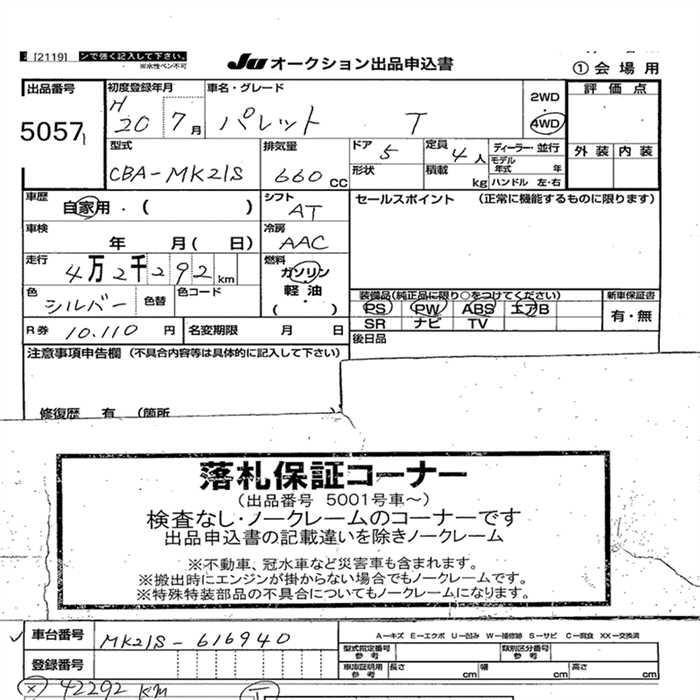 [2119] ンで強く記入して下さい。
※水性ペン不可
JU オークション出品申込書
①会場用
出品番号 5057
初度登録年月 H 20 7月
車名・グレード パレット T
2WD
4WD
評価点
型式 CBA-MK21S
排気量 660 CC
ドア 5
定員 4人
ディーラー・並行
形状
積載 kg
モデル年式 年
ハンドル 左・右
外装 内装
車歴 自家用・( )
シフト AT
セールスポイント (正常に機能するものに限ります)
車検 年 月( 日)
冷房 AAC
走行 4万2千292km
燃料 ガソリン・軽油・( )
色 シルバー 色替 色コード
装備品(純正品に限り○をつけてください)
新車保証書
PS PW ABS エアB
有・無
SR ナビ TV
R券 10.110 円
名変期限 月 日
後日品
注意事項申告欄 (不具合内容等は具体的に記入して下さい)
修復歴 有 (箇所
落札保証コーナー
(出品番号 5001号車~)
検査なし・ノークレームのコーナーです
出品申込書の記載違いを除きノークレーム
※不動車、冠水車など災害車も含まれます。
※搬出時にエンジンが掛からない場合でもノークレームです。
※特殊特装部品の不具合についてもノークレームになります。
車台番号 MK21S-616940
A-キズ E-エクボ U-凹み W-補修跡 S-サビ C-腐食 XX-交換済
型式指定番号 参考
類別区分番号 参考
登録番号
車庫証明用 参考 長さ cm 幅 cm 高さ cm
× 42292 KM